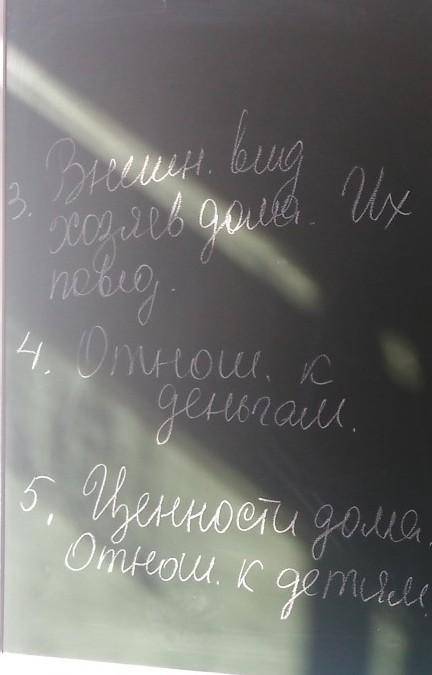 3. Внешн. вид
хозяев дома. Их
повед.
4. Отнош. к
деньгам.
5. Ценности дома.
Отнош. к детям.